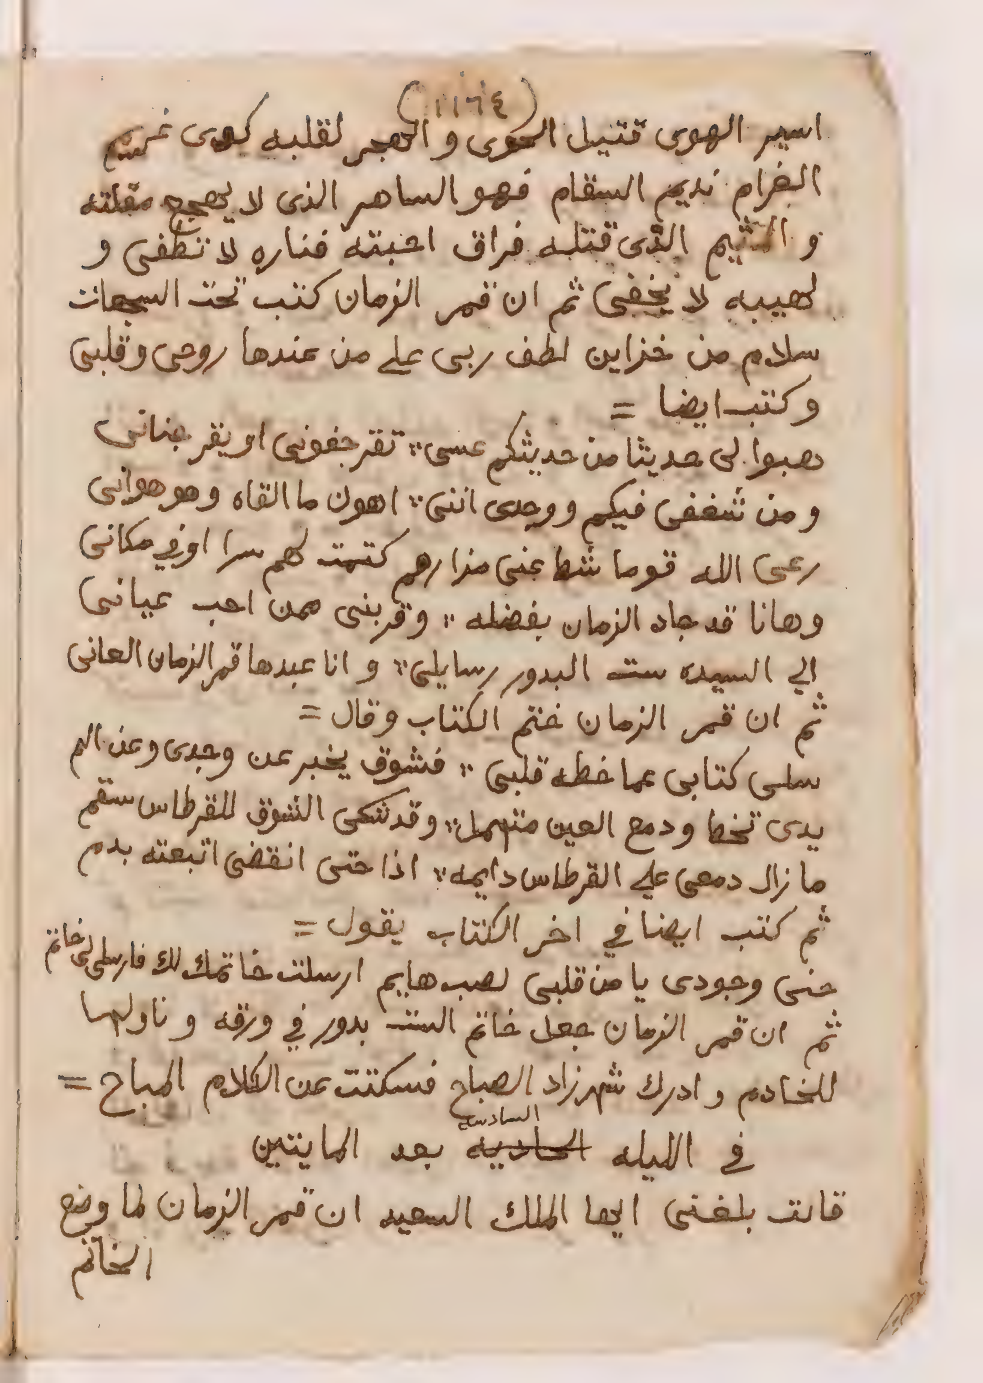 (١١٦٤)
اسير الهوى قتيل الجوى و الهجر لقلبه كوى غريم
الغرام نديم السقام فهو الساهر الذى لا يهجع مقلته
و المتيم الذى قتله فراق احبته فناره لا تطفى و
لهيبه لا يخفى ثم ان قمر الزمان كتب تحت السجعات
سلام من خزاين لطف ربى على من عندها روحى وقلبى
وكتب ايضا =
هبوا لى حديثا من حديثكم عسى ؛ تقر جفونى او يقر جنانى
ومن شغفى فيكم ووجدى اننى ؛ اهون ما القاه وهو هوانى
رعى الله قوما شط عنى مزارهم كتمت لهم سرا اوفي مكانى
وهانا قد جاد الزمان بفضله ؛ وقربنى ممن احب عيانى
الي السيده ست البدور رسايلى ؛ وانا عبدها قمر الزمان العانى
ثم ان قمر الزمان ختم الكتاب وقال =
سلى كتابى عما خطه قلبى ؛ فشوق يخبر عن وجدى وعن الم
يدى تخط ودمع العين منهمل ؛ وقد شكى الشوق للقرطاس سقم
ما زال دمعى على القرطاس دايمه ؛ اذا حتى انقضى اتبعته بدم
ثم كتب ايضا في اخر الكتاب يقول =
حنى وجودى يا من قلبى لصب هايم ارسلت خاتمك لك فارسلى لى خاتم
ثم ان قمر الزمان جعل خاتم الست بدور في ورقه وناولها
للخادم و ادرك شهرزاد الصباح فسكتت عن الكلام المباح =
في الليله الحاديه السادسه بعد المايتين
قالت بلغنى ايها الملك السعيد ان قمر الزمان لما وضع
الخاتم